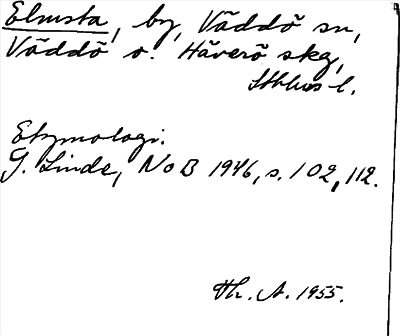 Elmsta, by, Väddö sn,
Väddö o. Häverö skg,
Sthlms l.
Etymologi.
G. Linde, NoB 1946, s. 102, 112.
Th. A. 1955.